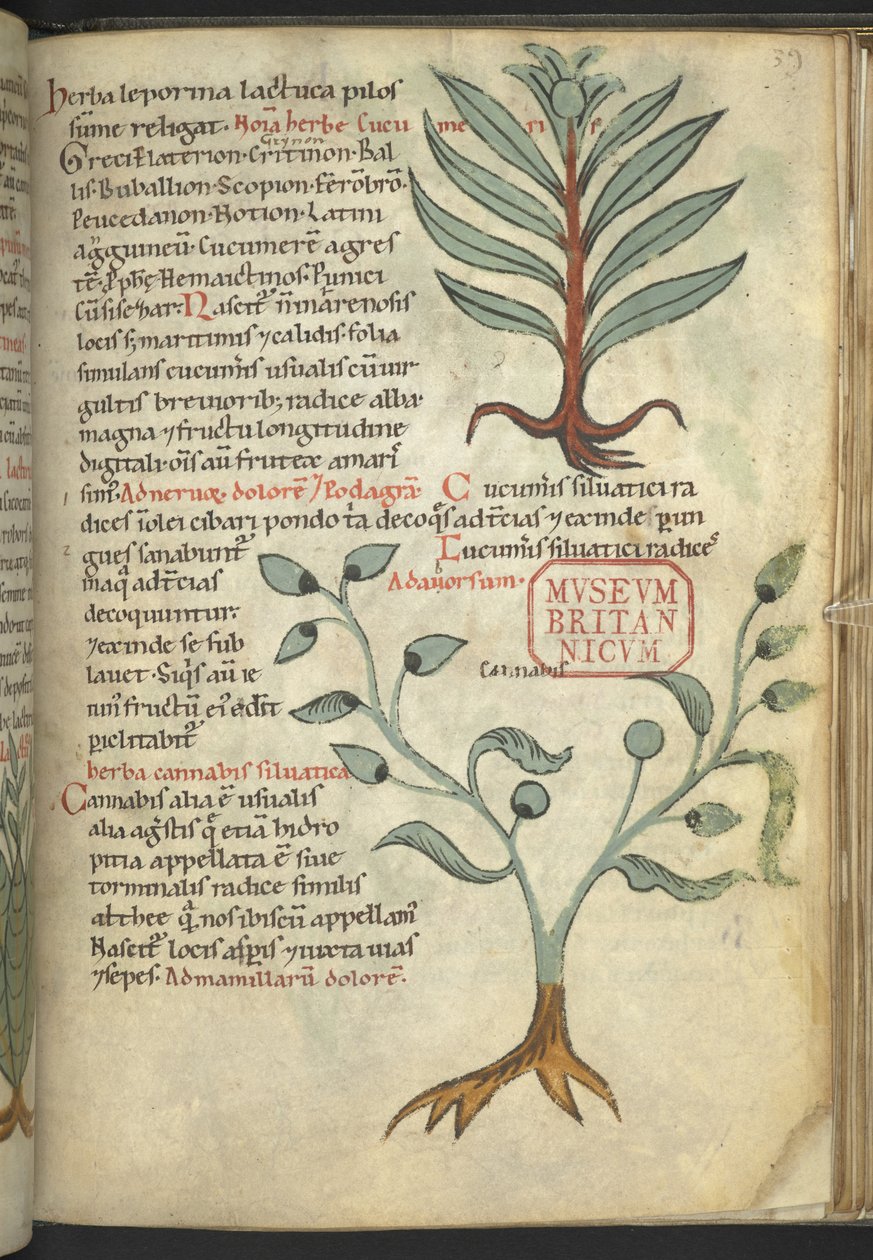 39
herba leporina lactuca pilos
sūme religat. Noīa herbe Cucu me ri s
Greci Elaterion. Critinon. Bal
grynon
lis. Buballion. Scopion. Ferōbrō.
Peucedanon. Notion. Latini
agguineū. Cucumerē agres
tē. Pphę. Nemaictinos. Punici
Cusisehar. Nascitᷣ in arenosis
locis s; maritimis ⁊ calidis. folia
simulans cucumis usualis cū uir
gultis breviorib; radice alba
magna ⁊ fructu longitudine
digitali. oīs aū frutex amari
sim᾽. Ad neruoȝ dolorē ⁊ Podagrā
Cucumis siluatici ra
dices ī olei cibari pondo decoq̄s ad t̄cias ⁊ exinde pun
gues sanabuntᷣ
Cucumis siluatici radice
Ad auorsum.
maq̄ ad t̄cias
decoquuntur
⁊ exinde se sub
lauet. Siq̄s aū ie
iun᾽ fructū ei᾽ edit
piclitabitᷣ
MVSEVM
BRITAN
NICVM
Cannabis
herba cannabis siluatica
Cannabis alia ē usualis
alia agstis q̄ etiā hidro
pitia appellata ē siue
torminalis radice similis
althee q̄ nos ibiscū appellam᾽
Nascitᷣ locis aspis ⁊ iuxta uias
⁊ sepes. Ad mamillarū dolorē.